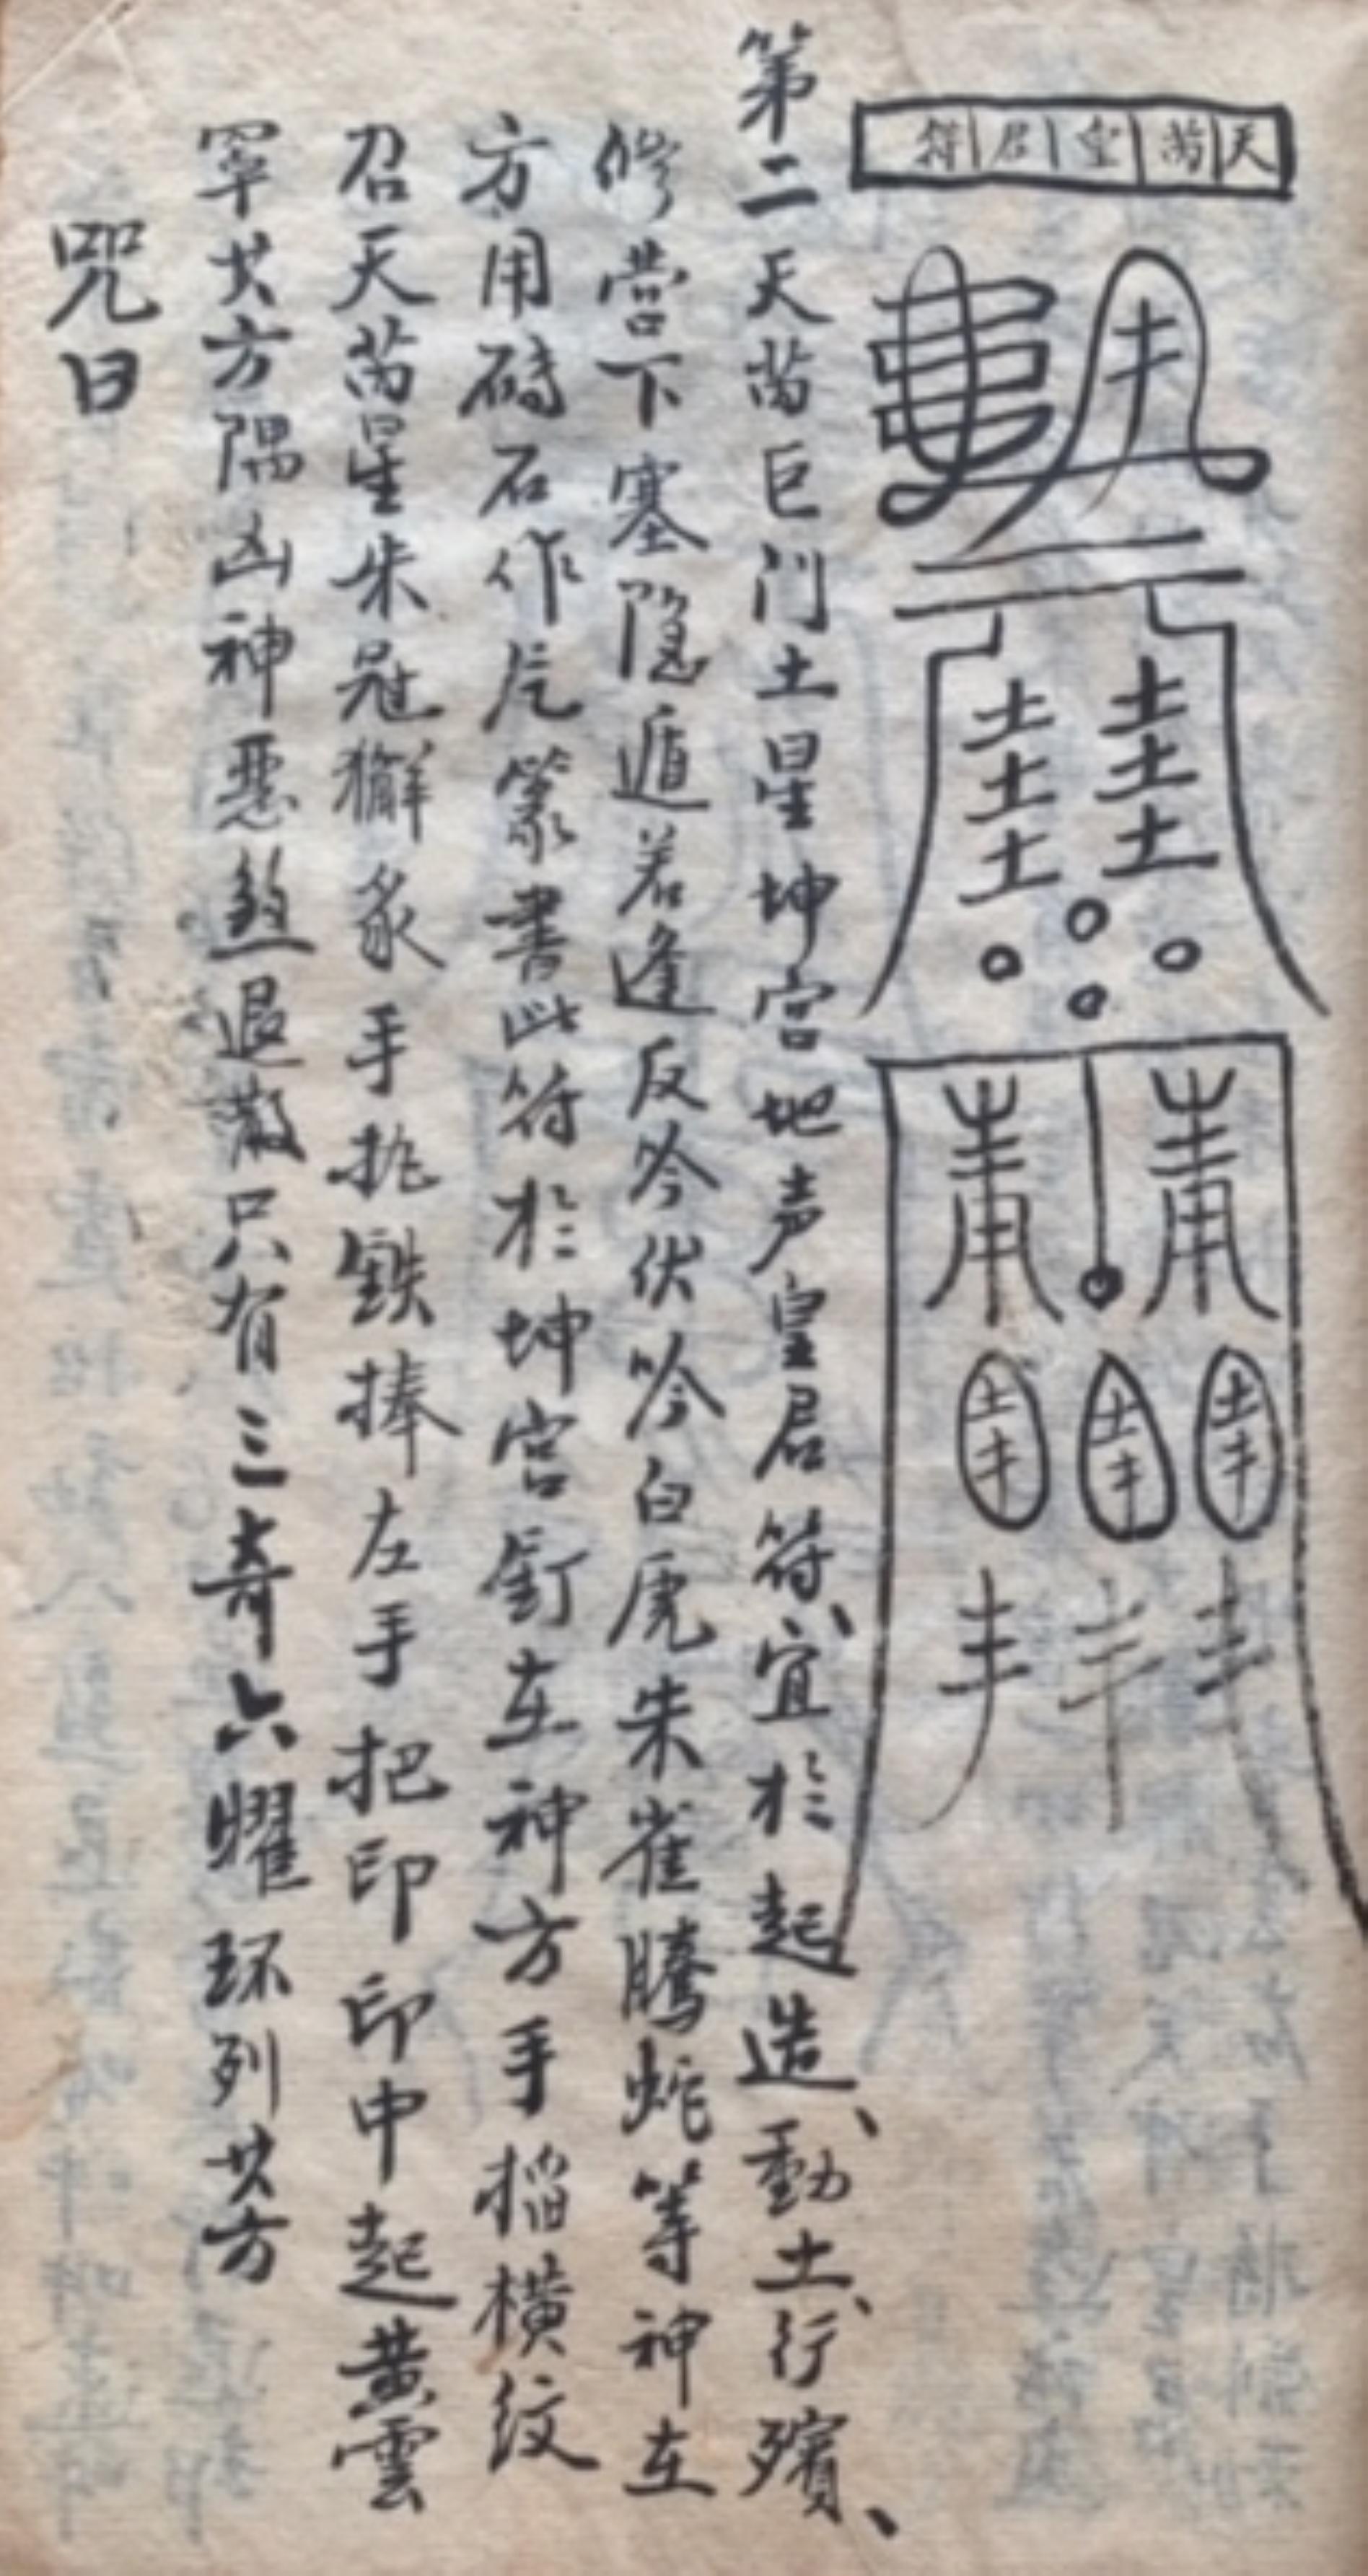 天芮皇君符
第二天芮巨门土星坤宫地声皇君符、宜於起造、動土、行殯、
修营下塞隐遁若逢反吟伏吟白虎朱雀騰蛇等神在
方用磚石作片篆書此符於坤宫釘在神方手掐橫纹
召天芮星朱冠獬豸手执鉄捧左手把印印中起黄雲
罩其方隅凶神惡煞退散只有三奇六曜环列其方
咒曰